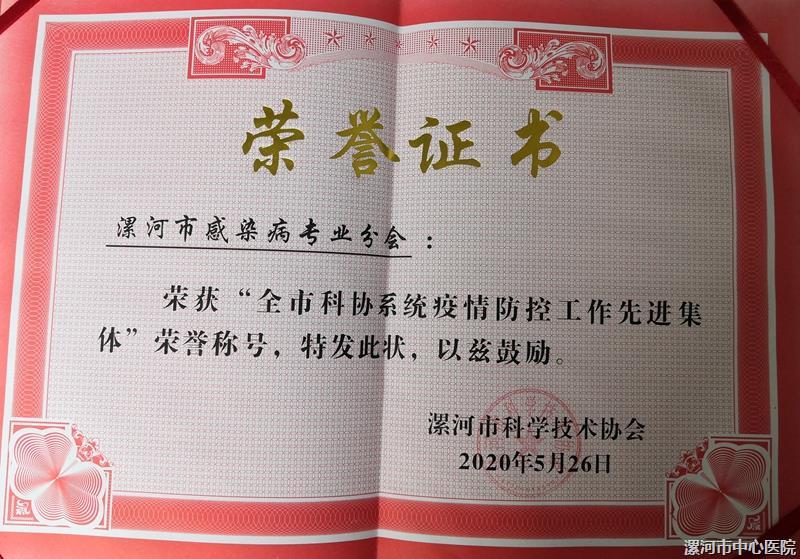 荣誉证书
漯河市感染病专业分会：
荣获“全市科协系统疫情防控工作先进集
体”荣誉称号，特发此状，以兹鼓励。
漯河市科学技术协会
2020年5月26日
漯河市中心医院